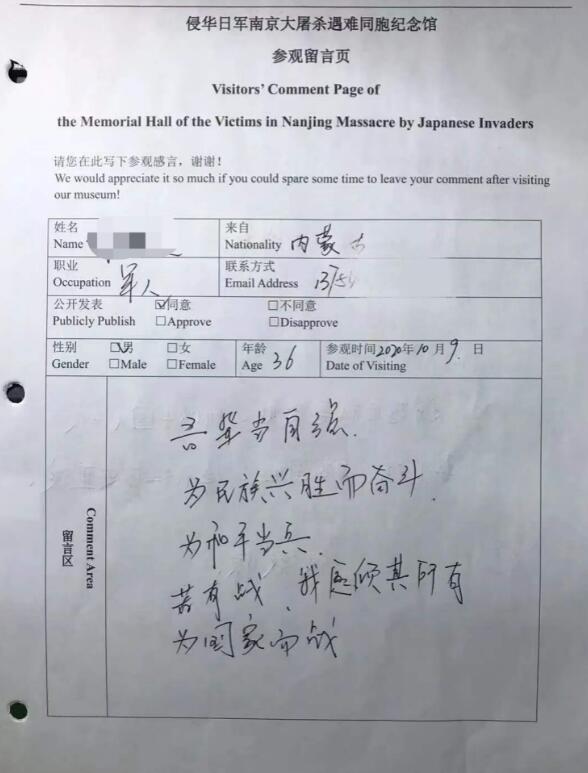 侵华日军南京大屠杀遇难同胞纪念馆
参观留言页
Visitors' Comment Page of
the Memorial Hall of the Victims in Nanjing Massacre by Japanese Invaders
请您在此写下参观感言，谢谢！
We would appreciate it so much if you could spare some time to leave your comment after visiting
our museum!
姓名
Name
来自
Nationality 内蒙古
职业
Occupation 军人
联系方式
Email Address
公开发表 ☑同意 □不同意
Publicly Publish □Approve □Disapprove
性别 ☑男 □女
Gender □Male □Female
年龄
Age 36
参观时间2020年10月9日
Date of Visiting
留言区
Comment Area
吾辈当自强.
为民族兴胜而奋斗.
为和平当兵.
若有战、我愿倾其所有
为国家而战